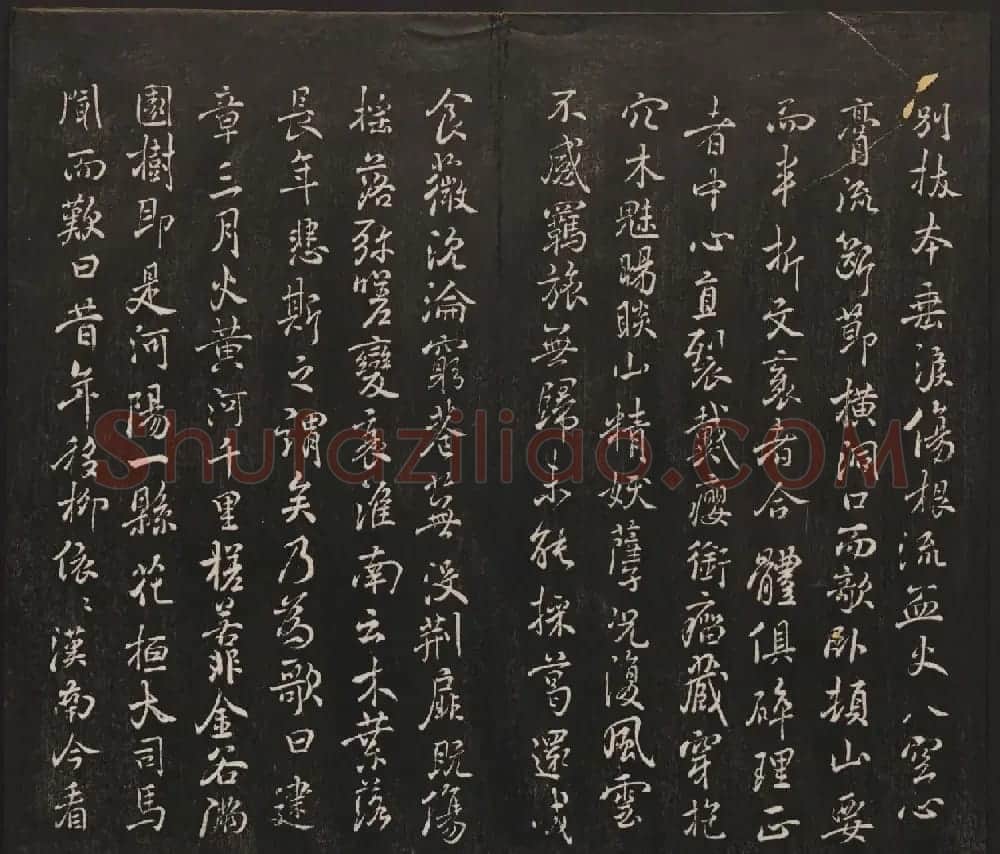 別拔本垂淚傷根流血火入空心
膏流斷節橫洞口而欹卧頓山要
而半折文衺者合體俱碎理正
者中心直裂戴癭銜瘤藏穿抱
穴木魅睗睒山精妖孽况復風雲
不感羈旅無歸未能採葛還成
食薇沉淪窮巷蕪没荊扉既傷
搖落弥嗟變衰淮南云木葉落
長年悲斯之謂矣乃為歌曰建
章三月火黄河千里槎若非金谷滿
園樹即是河陽一縣花桓大司馬
聞而歎曰昔年移柳依〻漢南今看
Shufaziliao.COM